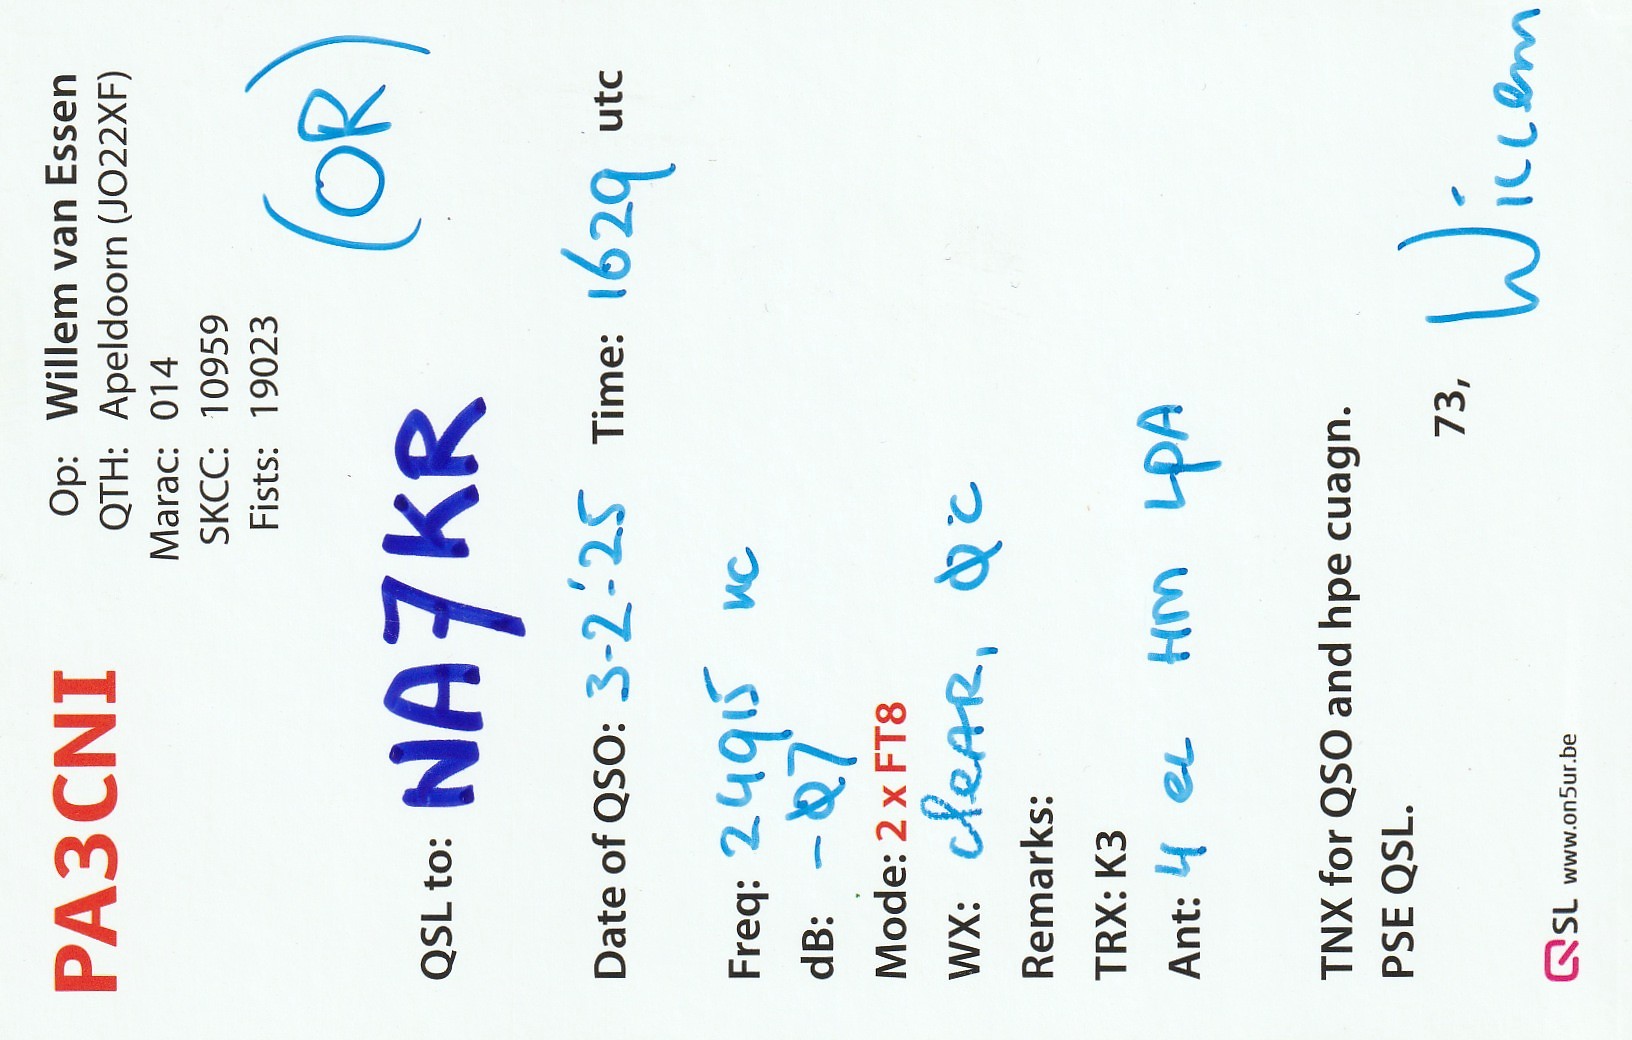 PA3CNI
Op: Willem van Essen
QTH: Apeldoorn (JO22XF)
Marac: 014
SKCC: 10959
Fists: 19023
(OR)
QSL to: NA7KR
Date of QSO: 3-2-'25 Time: 1629 utc
Freq: 24915 kc
dB: -07
Mode: 2 x FT8
WX: cleAR, 0°C
Remarks:
TRX: K3
Ant: 4 el HM LPA
TNX for QSO and hpe cuagn.
PSE QSL.
73,
Willem
QSL www.on5ur.be